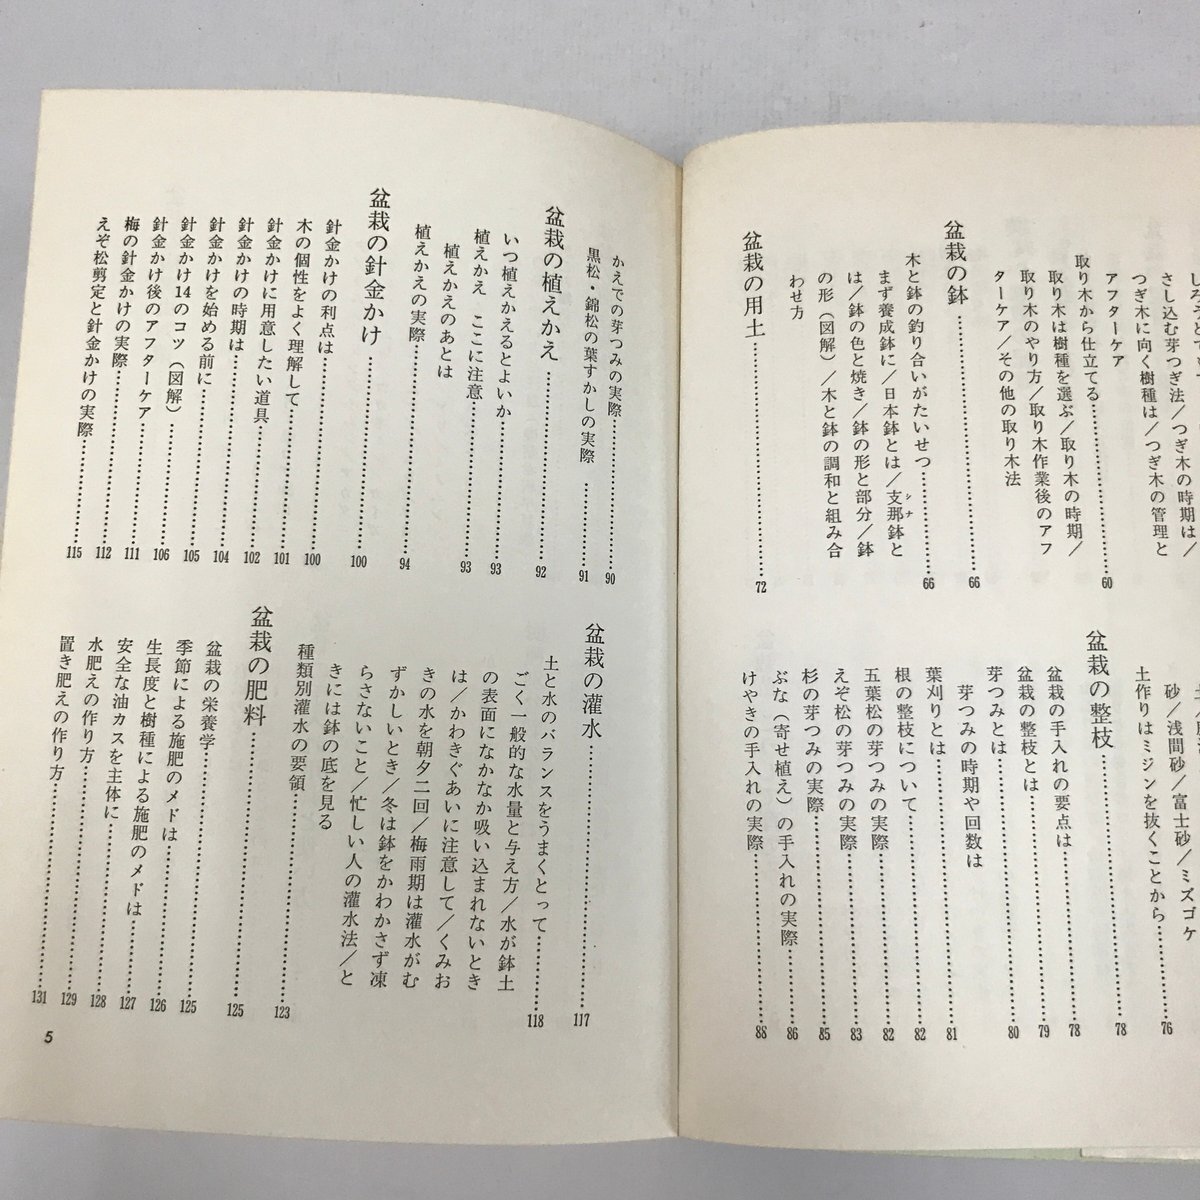 さし込む芽つぎ法／つぎ木の時期は／
つぎ木に向く樹種は／つぎ木の管理と
アフターケア
取り木から仕立てる………60
取り木は樹種を選ぶ／取り木の時期／
取り木のやり方／取り木作業後のアフ
ターケア／その他の取り木法
盆栽の鉢………66
木と鉢の釣り合いがたいせつ………66
まず養成鉢に／日本鉢とは／支那鉢と
シナ
は／鉢の色と焼き／鉢の形と部分／鉢
の形（図解）／木と鉢の調和と組み合
わせ方
盆栽の用土………72
砂／浅間砂／富士砂／ミズゴケ
土作りはミジンを抜くことから………76
盆栽の整枝………78
盆栽の手入れの要点は………78
盆栽の整枝とは………79
芽つみとは………80
芽つみの時期や回数は
葉刈りとは………81
根の整枝について………82
五葉松の芽つみの実際………82
えぞ松の芽つみの実際………83
杉の芽つみの実際………85
ぶな（寄せ植え）の手入れの実際………86
けやきの手入れの実際………88
かえでの芽つみの実際………90
黒松・錦松の葉すかしの実際………91
盆栽の植えかえ………92
いつ植えかえるとよいか………93
植えかえ　ここに注意………93
植えかえのあとは
植えかえの実際………94
盆栽の針金かけ………100
針金かけの利点は………100
木の個性をよく理解して………101
針金かけに用意したい道具………102
針金かけの時期は………104
針金かけを始める前に………105
針金かけ14のコツ（図解）………106
針金かけ後のアフターケア………111
梅の針金かけの実際………112
えぞ松剪定と針金かけの実際………115
盆栽の灌水………117
土と水のバランスをうまくとって………118
ごく一般的な水量と与え方／水が鉢土
の表面になかなか吸い込まれないとき
は／かわきぐあいに注意して／くみお
きの水を朝夕二回／梅雨期は灌水がむ
ずかしいとき／冬は鉢をかわかさず凍
らさないこと／忙しい人の灌水法／と
きには鉢の底を見る
種類別灌水の要領………123
盆栽の肥料………125
盆栽の栄養学………125
季節による施肥のメドは………126
生長度と樹種による施肥のメドは………127
安全な油カスを主体に………128
水肥えの作り方………129
置き肥えの作り方………131
5